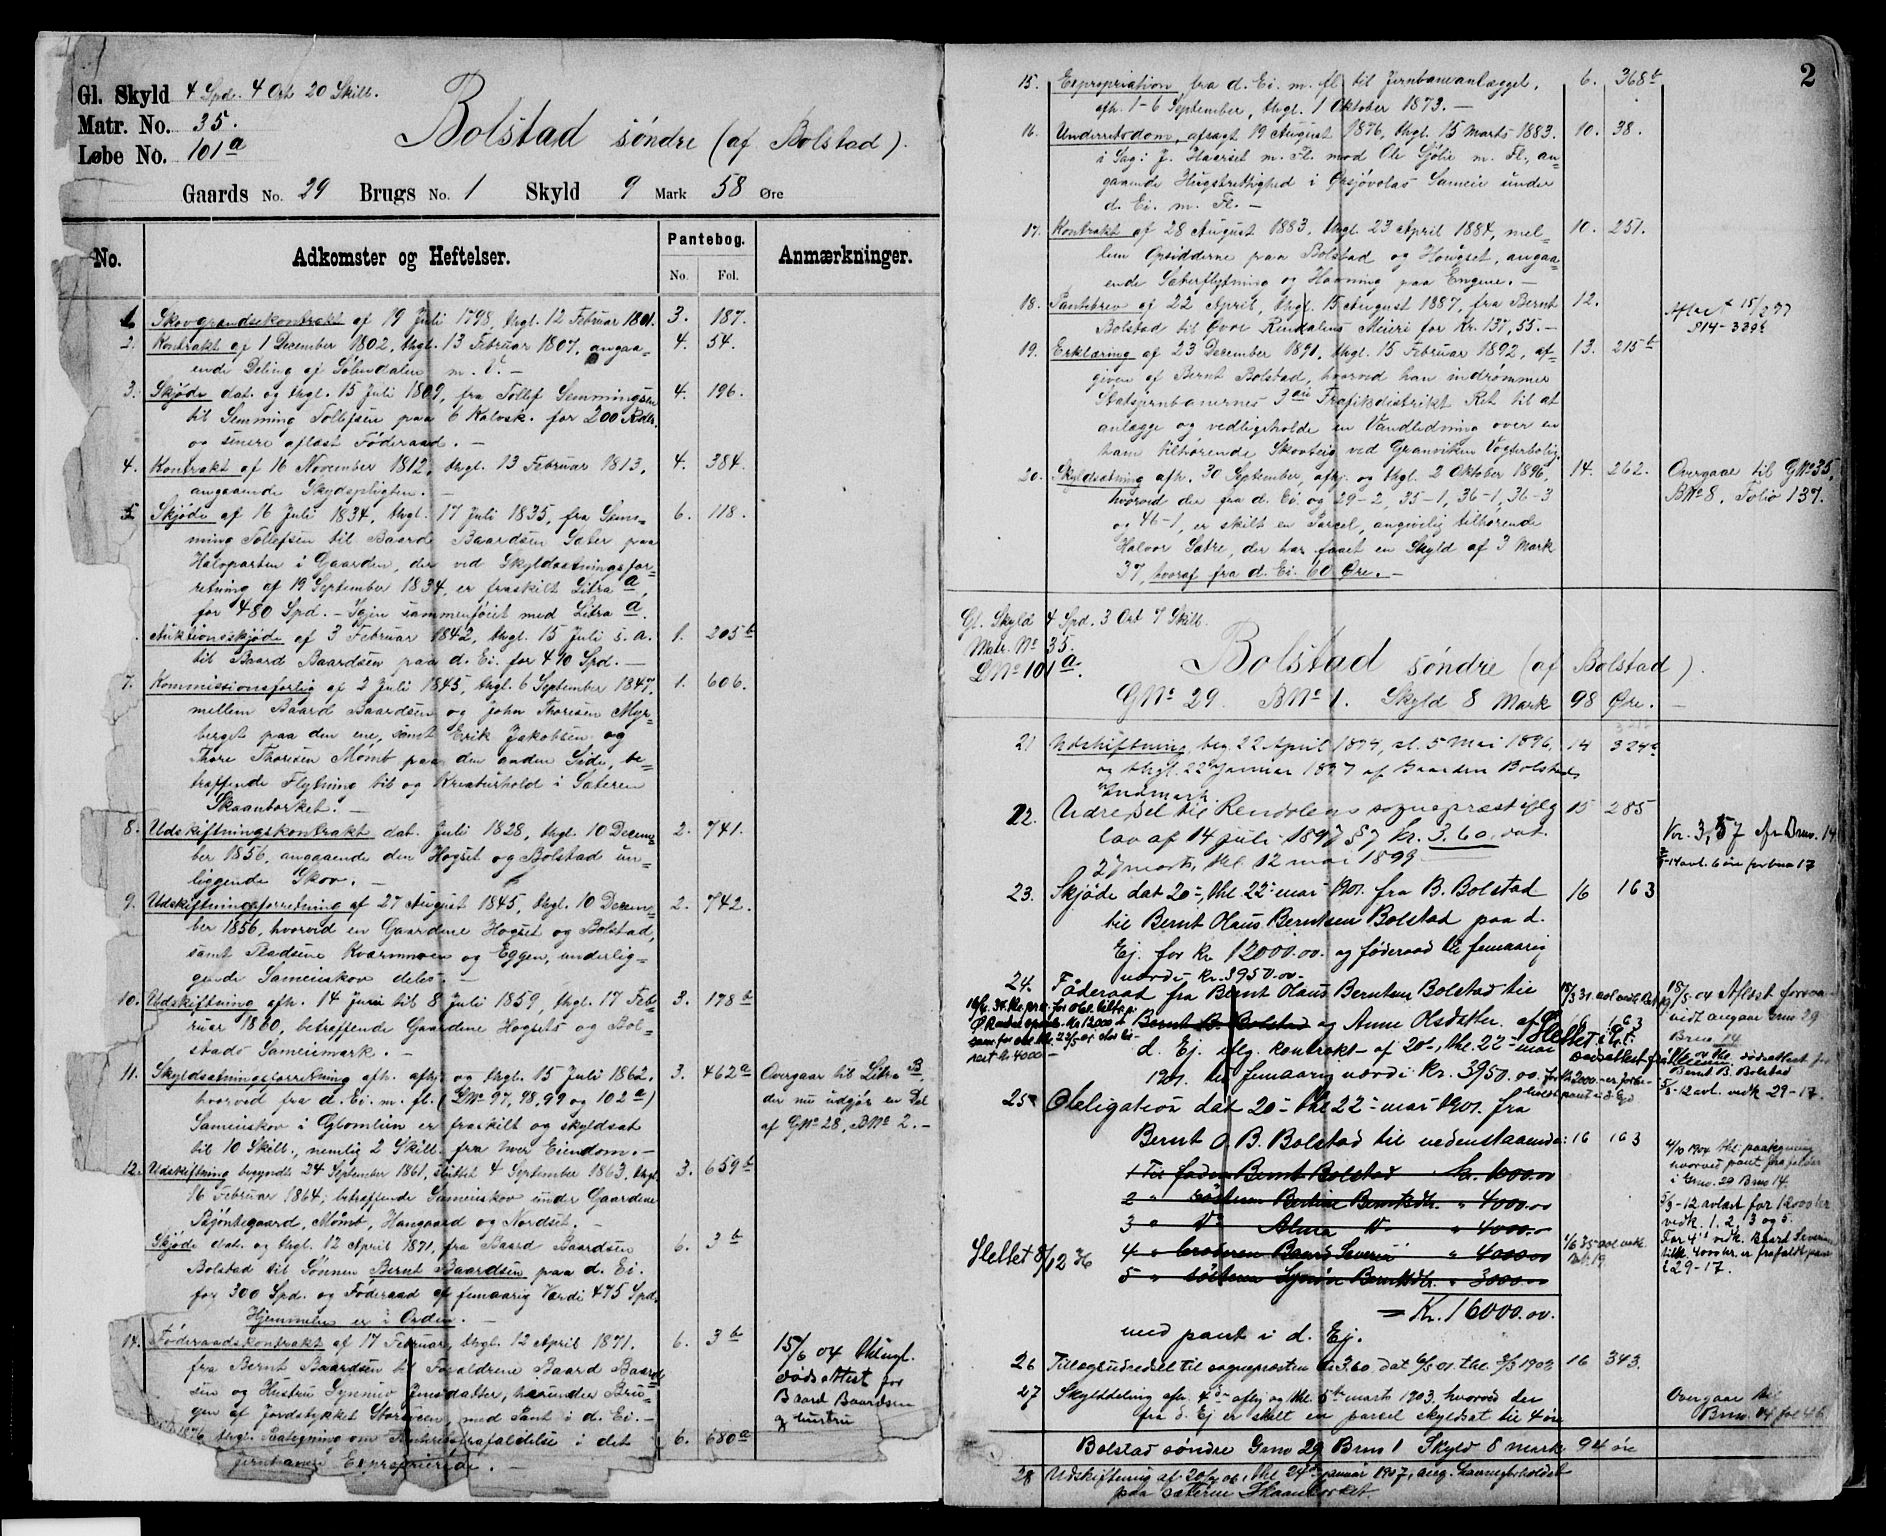 Gl. Skyld 4 Spd. 4 Ort 20 Skill.
Matr. No. 35.
Løbe No. 101a
Bolstad søndre (af Bolstad).
Gaards No. 29 Brugs No. 1 Skyld 9 Mark 58 Øre
No. Adkomster og Heftelser. Pantebog. No. Fol. Anmærkninger.
1. Skovgrændsekontrakt af 19 Juli 1798, thgl. 12 Februar 1801. 3. 187.
2. Kontrakt af 1 December 1802, thgl. 13 Februar 1807, angaa- 4. 54.
ende Deling af Sølendalen m. V. –
3. Skjøde dat. og thgl. 15 Juli 1809, fra Tollef Semmingsen 4. 196.
til Semming Tollefsen paa 6 Kalvsk. for 200 Rdlr.
og senere aflæst Føderaad. –
4. Kontrakt af 16 November 1812, thgl. 13 Februar 1813, 4. 384.
angaaende Skydspligten. –
5. Skjøde af 16 Juli 1834, thgl. 17 Juli 1835, fra Sem- 6. 118.
ming Tollefsen til Baard Baardsen Sæter paa
Halvparten i Gaarden, der ved Skyldsætningsfor-
retning af 19 September 1834, er fraskilt Litra a,
for 480 Spd. – Igjen sammenføiet med Litra a.
Auktionsskjøde af 3 Februar 1842, thgl. 15 Juli s. a. 1. 205b
til Baard Baardsen paa d. Ei. for 490 Spd. –
7. Kommissionsforlig af 2 Juli 1845, thgl. 6 September 1847, 1. 606.
mellem Baard Baardsen og John Thoresen Myr-
berget paa den ene, samt Erik Jakobsen og
Thore Thoresen Mømb paa den anden Side, be-
træffende Flytning til og Kreaturhold i Sæteren
Skaanborket. –
8. Udskiftningskontrakt dat. Juli 1828, thgl. 10 Decem- 2. 741.
ber 1856, angaaende den Hogset og Bolstad un-
liggende Skov. –
9. Udskiftningsforretning af 27 August 1845, thgl. 10 Decem- 2. 742.
ber 1856, hvorved en Gaardene Hogset og Bolstad,
samt Pladsene Kværnmoen og Eggen, underlig-
gende Sameieskov deles. –
10. Udskiftning afh. 14 Juni til 8 Juli 1859, thgl. 17 Feb- 3. 178b
ruar 1860, betræffende Gaardene Hogsets og Bol-
stads Sameiemark. –
11. Skyldsætningsforretning afh. afhj. og thgl. 15 Juli 1862, 3. 462a Overgaar til Litra B,
hvorved fra d. Ei. m. fl. (LNo 97, 98, 99 og 102a) der nu udgjør en Del
Sameieskov i Glomlien er fraskilt og skyldsat af GNo 28, BNo 2. –
til 10 Skill., nemlig 2 Skill. fra hver Eiendom. –
12. Udskiftning begyndt 24 September 1861, sluttet 4 September 1863, thgl. 3. 659b
16 Februar 1864, betræffende Sameieskov under Gaardene
Bjøntegaard, Mømb, Haugaard og Nordset. –
Skjøde dat. og thgl. 12 April 1871, fra Baard Baardsen 6. 3b
Bolstad til Sønnen Bernt Baardsen paa d. Ei.
for 300 Spd. og Føderaad af femaarig Værdi 475 Spd.
Hjemmelen er i Orden. –
14. Føderaadskontrakt af 17 Februar, thgl. 12 April 1871. 6. 3b 15/6 04 thlngl.
fra Bernt Baardsen til Forældrene Baard Baard- dødsattest for
sen og Hustru Synnøv Jensdatter, herunder Bru- Baard Baardsen
gen af Jordstykket Storsveen, med Pant i d. Ei. – og hustru
1876 thgl. Paategning om Panteafrafaldelse i det 6. 680a
Jernbanen Exproprierede. –
2
15. Expropriation fra d. Ei. m. fl. til Jernbaneanlægget, 6. 368b
afh. 1–6 September, thgl. 1 Oktober 1873. –
16. Underretsdom, afsagt 19 August 1876, thgl. 15 Marts 1883. 10. 38.
i Sag: J. Haarset m. Fl. mod Ole Sjølie m. Fl., an-
gaaende Hugstrettighed i Øksjøvolas Sameie under
d. Ei. m. Fl. –
17. Kontrakt af 28 August 1883, thgl. 23 April 1884, mel- 10. 251.
lem Opsidderne paa Bolstad og Hougset, angaa-
ende Sæterflytning og Havning paa Engene. –
18. Pantebrev af 22 April, thgl. 15 August 1887, fra Bernt 12.
Bolstad til Øvre Rendalens Meieri for Kr. 137,55. – Aflæst 15/2 97
P14–339b
19. Erklæring af 23 December 1891, thgl. 15 Februar 1892, af- 13. 215b
given af Bernt Bolstad, hvorved han indrømmer
Statsjernbanernes 3die Trafikdistrikt Ret til at
anlægge og vedligeholde en Vandledning over en
ham tilhørende Skovteig ved Granviken Vogterbolig.
20. Skyldsætning afh. 30 September, afhj. og thgl. 2 Oktober 1896, 14. 262. Overgaar til GNo 35,
hvorved der fra d. Ei. og 29–2, 35–1, 36–1, 36–3 BNo 8, Folio 137.
og 46–1, er skilt en Parcel, angivelig tilhørende
Halvor Sætre, der har faaet en Skyld af 3 Mark
37, hvoraf fra d. Ei. 60 Øre. –
Gl. Skyld 4 Spd. 3 Ort 7 Skill.
Matr. No 35.
LNo 101a.
Bolstad søndre (af Bolstad).
GNo 29. BNo 1. Skyld 8 Mark 98 Øre. –
21 Udskiftning, beg. 22 April 1894, sl. 5 Mai 1896, 14 324a
og thgl. 22 Januar 1897 af Gaarden Bolstads
Indmark.
22. Udredsel til Rendalens sognepræst iflg 15 285
lov af 14 juli 1897 §7 Kr. 3.60, dat. Kr. 3,57 afr Brno. 14
27 marts, thl. 12 mai 1899. avl. 6 øre for bno 17
23. Skjøde dat 20–, thl 22– mai 1901. fra B. Bolstad 16 163
til Bernt Olaus Berntsen Bolstad paa d.
Ej. for kr 12000.00. og føderaad til femaarig
værdi kr. 3950.00.–
24. Føderaad fra Bernt Olaus Berntsen Bolstad til
Bernt B. Bolstad og Anne Olsdatter. 16 163
d. Ej. iflg. kontrakt af 20–, thl. 22– mai
1901. til femaarig værdi kr. 3950.00.
15/5 04 Aflæst forsaa-
vidt angaar Gno 29
Brno 14
dødsattest for
Bernt B. Bolstad
5/3–12 avl. vedk 29–17.
25 Obligation dat 20– thl 22– mai 1901. fra
Bernt O. B. Bolstad til nedenstaaende: 16 163
1 Til faderen Bernt Bolstad Kr. 1000.00
2 " søsteren Berthe Berntsdtr. " 4000.00
3 " Do Anna Do " 4000.00
4 " broderen Baard Severin " 4000.00
5 " søsteren Synøv Berntsdtr. " 3000.00
= Kr. 16000.00.
med pant i d. Ej.
Slettet 8/12 36
4/10 1904 thl. paategning
hvorved pant frafaldes
i Gno. 29 Brno 14.
5/3–12 avlæst for 12000 kr
vedk. 1, 2, 3 og 5.
For 4 vedk. Baard Severin
tilk. 4000 kr. er frafaldt pant
i 29–17.
26 Tillægsudredsel til sognepræsten kr 3.60 dat 6/5 01 thl. 3/3 1903 16 343.
27 Skylddeling afh. 4de afhj og thl. 5te marts 1903, hvorved der Overgaar til
fra d. Ej er skilt en parsel skyldsat til 4 øre Brno. 14 fol 46
Bolstad søndre Gno 29 Brno 1 Skyld 8 mark 94 øre
28 Udskiftning af 20/9 06, thl 24de januar 1907, ang. havneforholdet
paa sæteren Skaanborket.